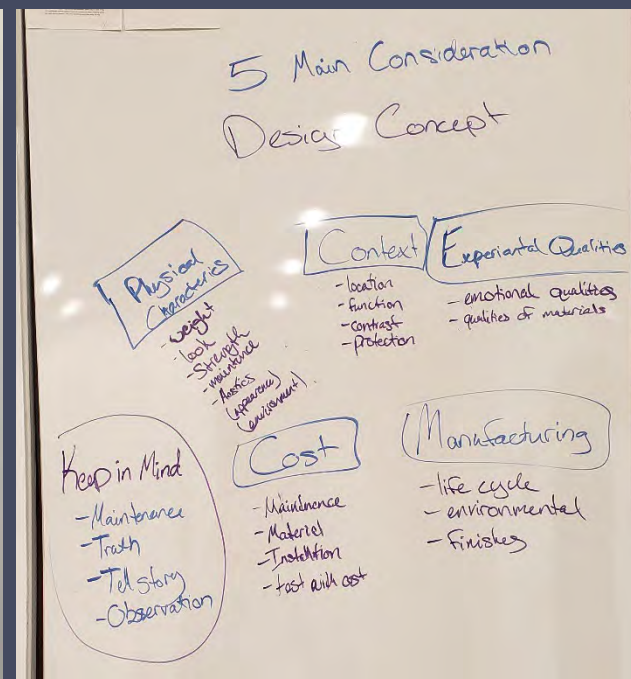 5 Main Consideration
Design Concept
Physical
Characterics
- weight
- look
- Strength
- maintence
(appearence)
(environment)
Context
- location
- function
- contrast
- protection
Experiantal Qualities
- emotional qualities
- qualities of materials
Keep in Mind
- Maintenance
- Truth
- Tell story
- Observation
Cost
- Maintenance
- Material
- Installtion
- cost
Manufacturing
- life cycle
- environmental
- finishes